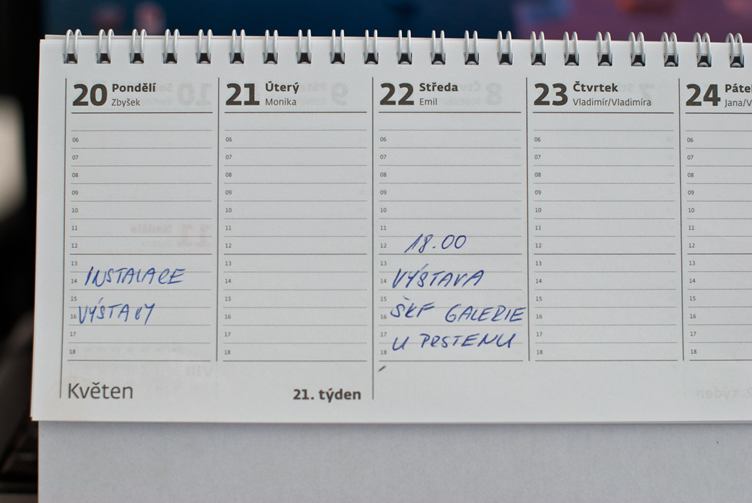 20 Pondělí
Zbyšek
21 Úterý
Monika
22 Středa
Emil
23 Čtvrtek
Vladimír/Vladimíra
24
06
07
08
09
10
11
12
13
14
15
16
17
18
INSTALACE
VÝSTAVY
06
07
08
09
10
11
12
13
14
15
16
17
18
06
07
08
09
10
11
12
13
14
15
16
17
18
18.00
VÝSTAVA
ŠKF GALERIE
U PRSTENU
06
07
08
09
10
11
12
13
14
15
16
17
18
06
07
08
09
10
11
12
13
14
15
16
17
18
Květen
21. týden